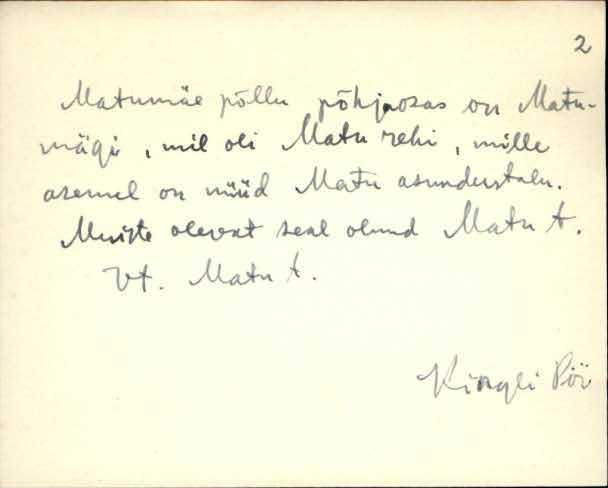 2
Matumäe põllu põhjaosas on Matu-
mägi, mil oli Matu rehi, mille
asemel on nüüd Matu asundustalu.
Muiste olevat seal olnud Matu t.
Vt. Matu t.
Kingli Pöi